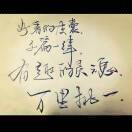 好看的皮囊
千篇一律
有趣的灵魂
万里挑一